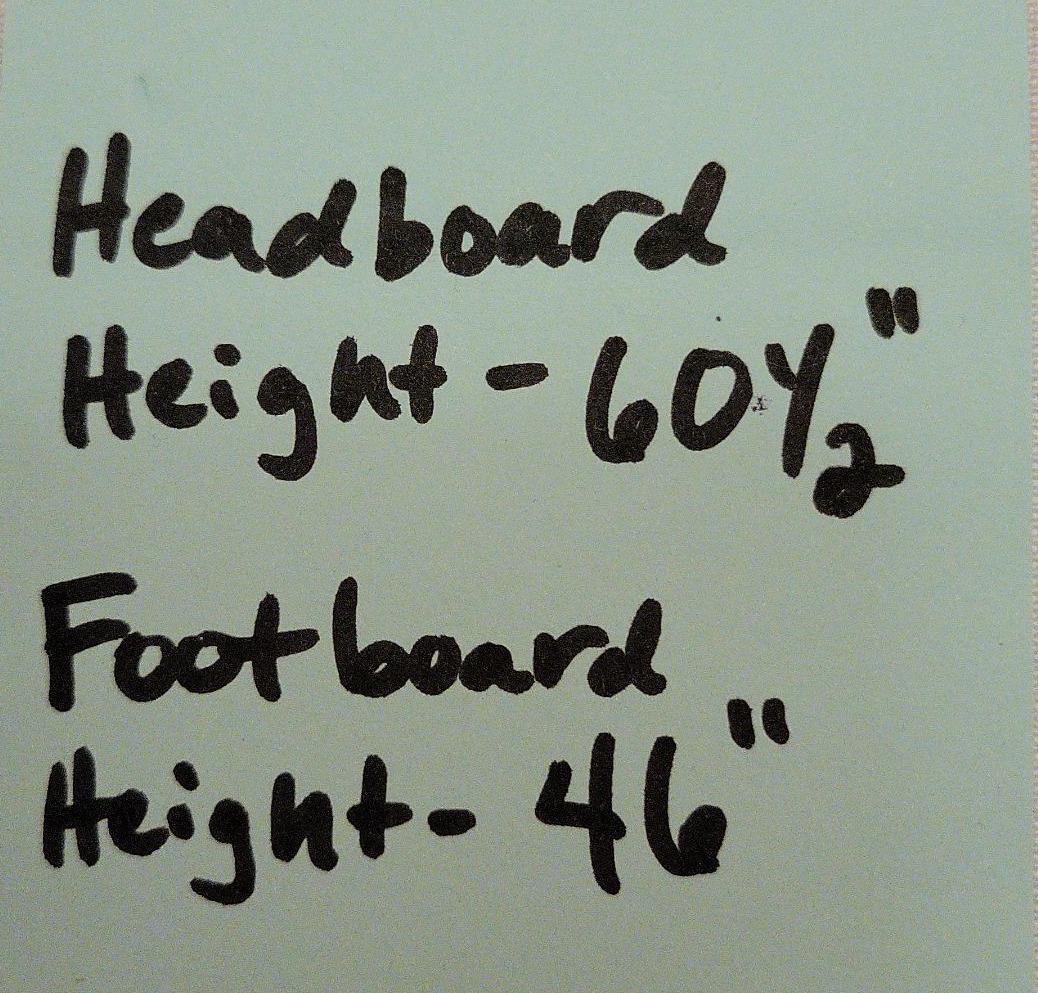 Headboard
Height - 60 1/2"
Footboard
Height - 46"